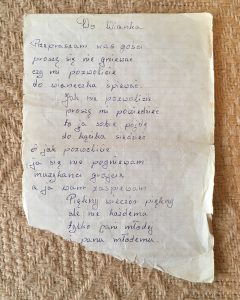 Do Wianka
Przepraszam was goście
proszę się nie gniewać
czy mi pozwolicie
do wianeczka śpiewać
Jak nie pozwolicie
proszę mi powiedzieć
to ja sobie pójdę
do kącika siedzieć
a jak pozwolicie
ja się nie pogniewam
muzykanci grajcie
a ja wam zaśpiewam
Piękny wieczór piękny
ale nie każdemu
tylko pani młodej
i panu młodemu